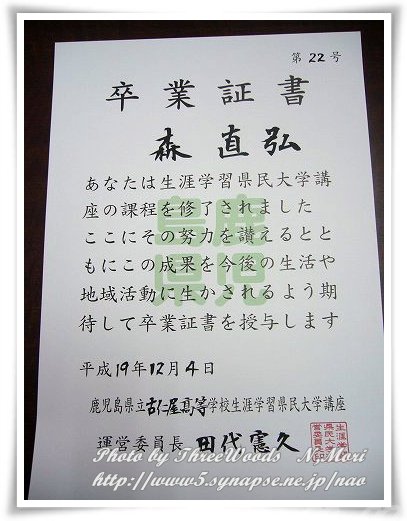 第22号
卒業証書
森直弘
あなたは生涯学習県民大学講
座の課程を修了されました
ここにその努力を讃えるとと
もにこの成果を今後の生活や
地域活動に生かされるよう期
待して卒業証書を授与します
平成19年12月4日
鹿児島県立古仁屋高等学校生涯学習県民大学講座
運営委員長 田代憲久
鹿児島県
Photo by ThreeWoods N.Mori
http://www5.synapse.ne.jp/nao